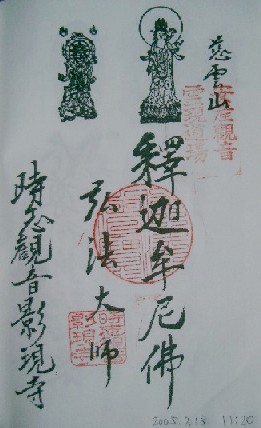 慈雲山
安産観音
霊現道場
釋迦牟尼佛
弘法大師
時志觀音影現寺
2005.2.18 11:20